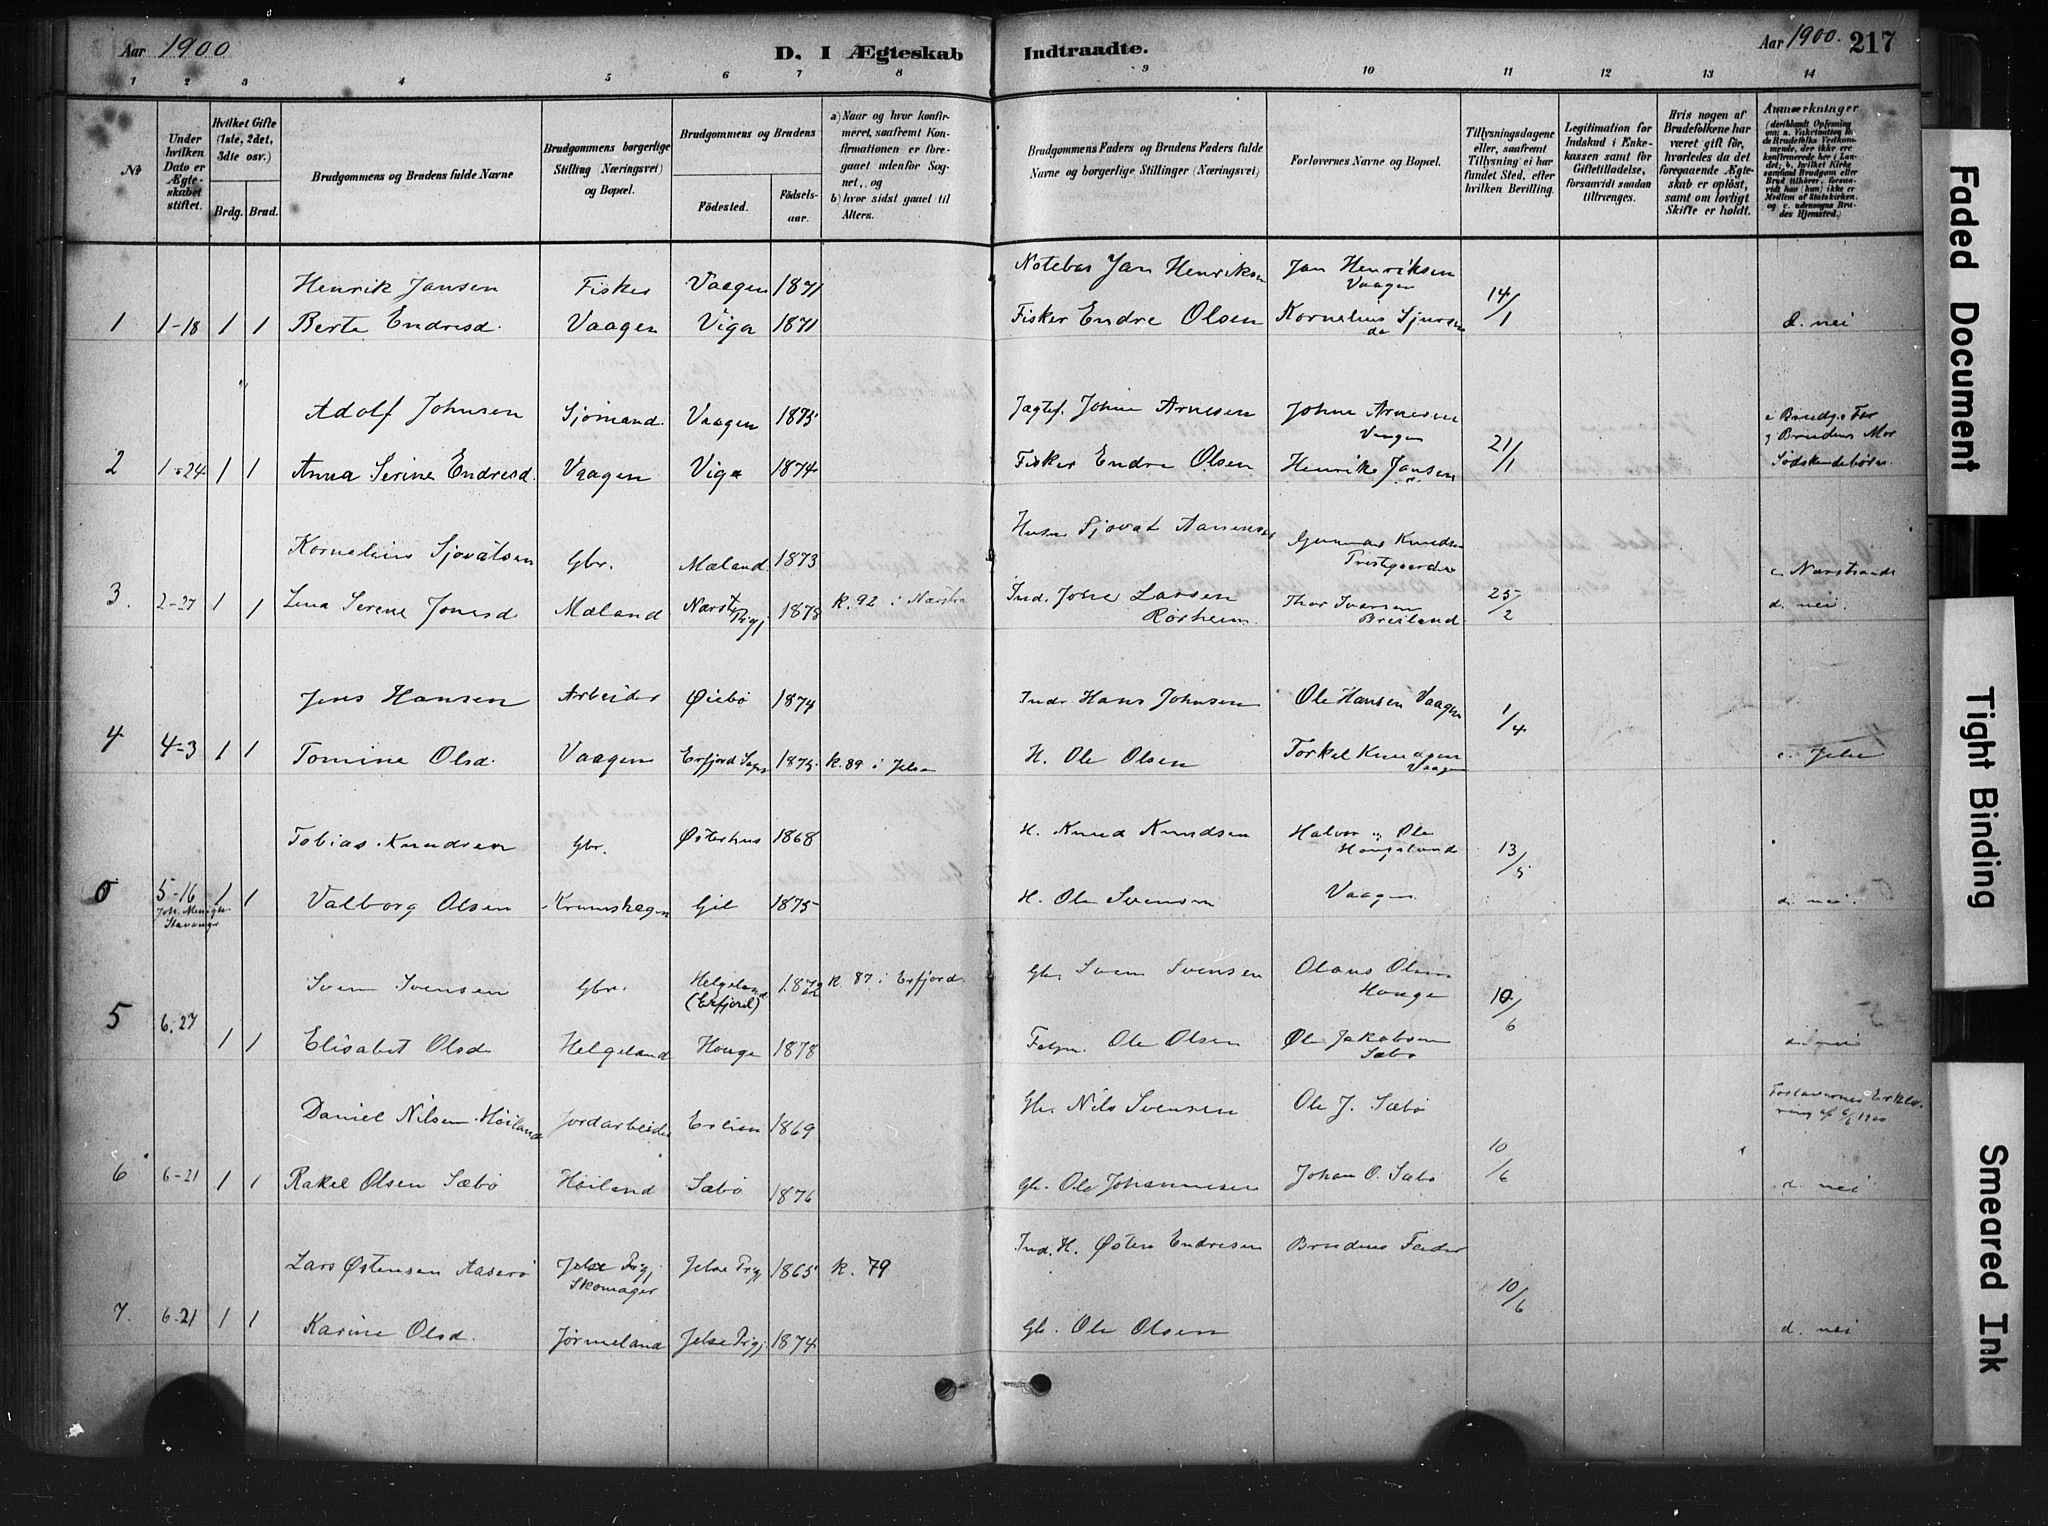 Aar 1900
D. I Ægteskab Indtraadte.
Aar 1900. 217
1 2 3 4 5 6 7 8 9 10 11 12 13 14
No
Under hvilken Dato er Ægteskabet stiftet.
Hvilket Gifte (1ste, 2det, 3die osv.)
Brdg. Brud.
Brudgommens og Brudens fulde Navne
Brudgommens borgerlige Stilling (Næringsvei) og Bopæl.
Brudgommens og Brudens
Fødested.
Fødselsaar.
a) Naar og hvor konfirmeret, saafremt Konfirmationen er foregaaet udenfor Sognet, og
b) hvor sidst gaaet til Alters.
Brudgommens Faders og Brudens Faders fulde Navne og borgerlige Stillinger (Næringsvei)
Forlovernes Navne og Bopæl.
Tillysningsdagene eller, saafremt Tillysning ei har fundet Sted, efter hvilken Bevilling.
Legitimation for Indskud i Enkekassen samt for Giftetilladelse, forsaavidt saadan tiltrænges.
Hvis nogen af Brudefolkene har været gift før, hvorledes da det foregaaende Ægteskab er opløst, samt om lovligt Skifte er holdt.
Anmærkninger (deriblandt Oplysning om: a. Vakcination for de Brudefolks Vedkommende, der ikke ere konfirmerede her i Landet; b. hvilket Kirkesamfund Brudgom eller Brud tilhører, forsaavidt han (hun) ikke er Medlem af Statskirken, og c. udensogns Brudes Hjemsted.)
Henrik Jansen Fisker Vaagen 1871 Notebas Jan Henriksen Jan Henriksen Vaagen 14/1
1 1-18 1 1 Berte Endresd. Vaagen Viga 1871 Fisker Endre Olsen Kornelius Sjursen do d. nei
Adolf Johnsen Sjømand. Vaagen 1875 Jagtef. Johne Arnesen Johne Arnesen Vaagen 21/1 c Brudg. Far og Brudens Mor
2 1-24 1 1 Anna Serine Endresd. Vaagen Viga 1874 Fisker Endre Olsen Henrik Jansen Sødskendebørn
Kornelius Sjovatsen Gbr. Mæland 1873 Husm Sjovat Aanensen Gunnar Knudsen Prestgaarden
3. 2-27 1 1 Lena Serene Jonesd Mæland Nærst. Prgj. 1878 k. 92 i Nærstra Ind. Jone Larsen Rørheim Thor Ivarsen Breiland 25/2 c Nærstrand d. nei.
Jens Hansen Arbeider Øiebø 1874 Inder Hans Johnsen Ole Hansen Vaagen 1/4
4 4-3 1 1 Tomine Olsd. Vaagen Erfjord Sogn 1875 k. 89 i Jelse H. Ole Olsen Torkel Knudsen Vaagen c. Jelse
Tobias Knudsen Gbr. Østerhus 1868 H. Knud Knudsen Halvor og Ole Hougaland 13/5
5-16 1 1 Valborg Olsen Krunshagen Gil 1875 H. Ole Svensen Vaagen d. nei.
Joh. Menigh. Stavanger
Sven Svensen Gbr. Helgeland (Erfjord) 1872 k. 87 i Erfjord Gbr. Sven Svensen Olaus Olsen Houge 10/6
5 6.27 1 1 Elisabet Olsd Helgeland Houge 1878 Ole Olsen Ole Jakobsen Sæbø d. nei
Daniel Nilsen Høiland Jordarbeider Erlien 1869 Gbr. Nils Svensen Ole J. Sæbø 10/6 Forlovernes Erklæring af 6/6 1900
6 6-21 1 1 Rakel Olsen Sæbø Høiland Sæbø 1876 Gbr. Ole Johannesen Johan O. Sæbø d. nei
Lars Østensen Aaserø Jelse Prgj. Skomager Jelse Prgj 1865 k. 79 Ind. H. Østen Endresen Brudens Fader 10/6
7. 6-21 1 1 Karine Olsd. Jørmeland Jelse Prgj 1874 Gbr. Ole Olsen d. nei
Faded Document
Tight Binding
Smeared Ink